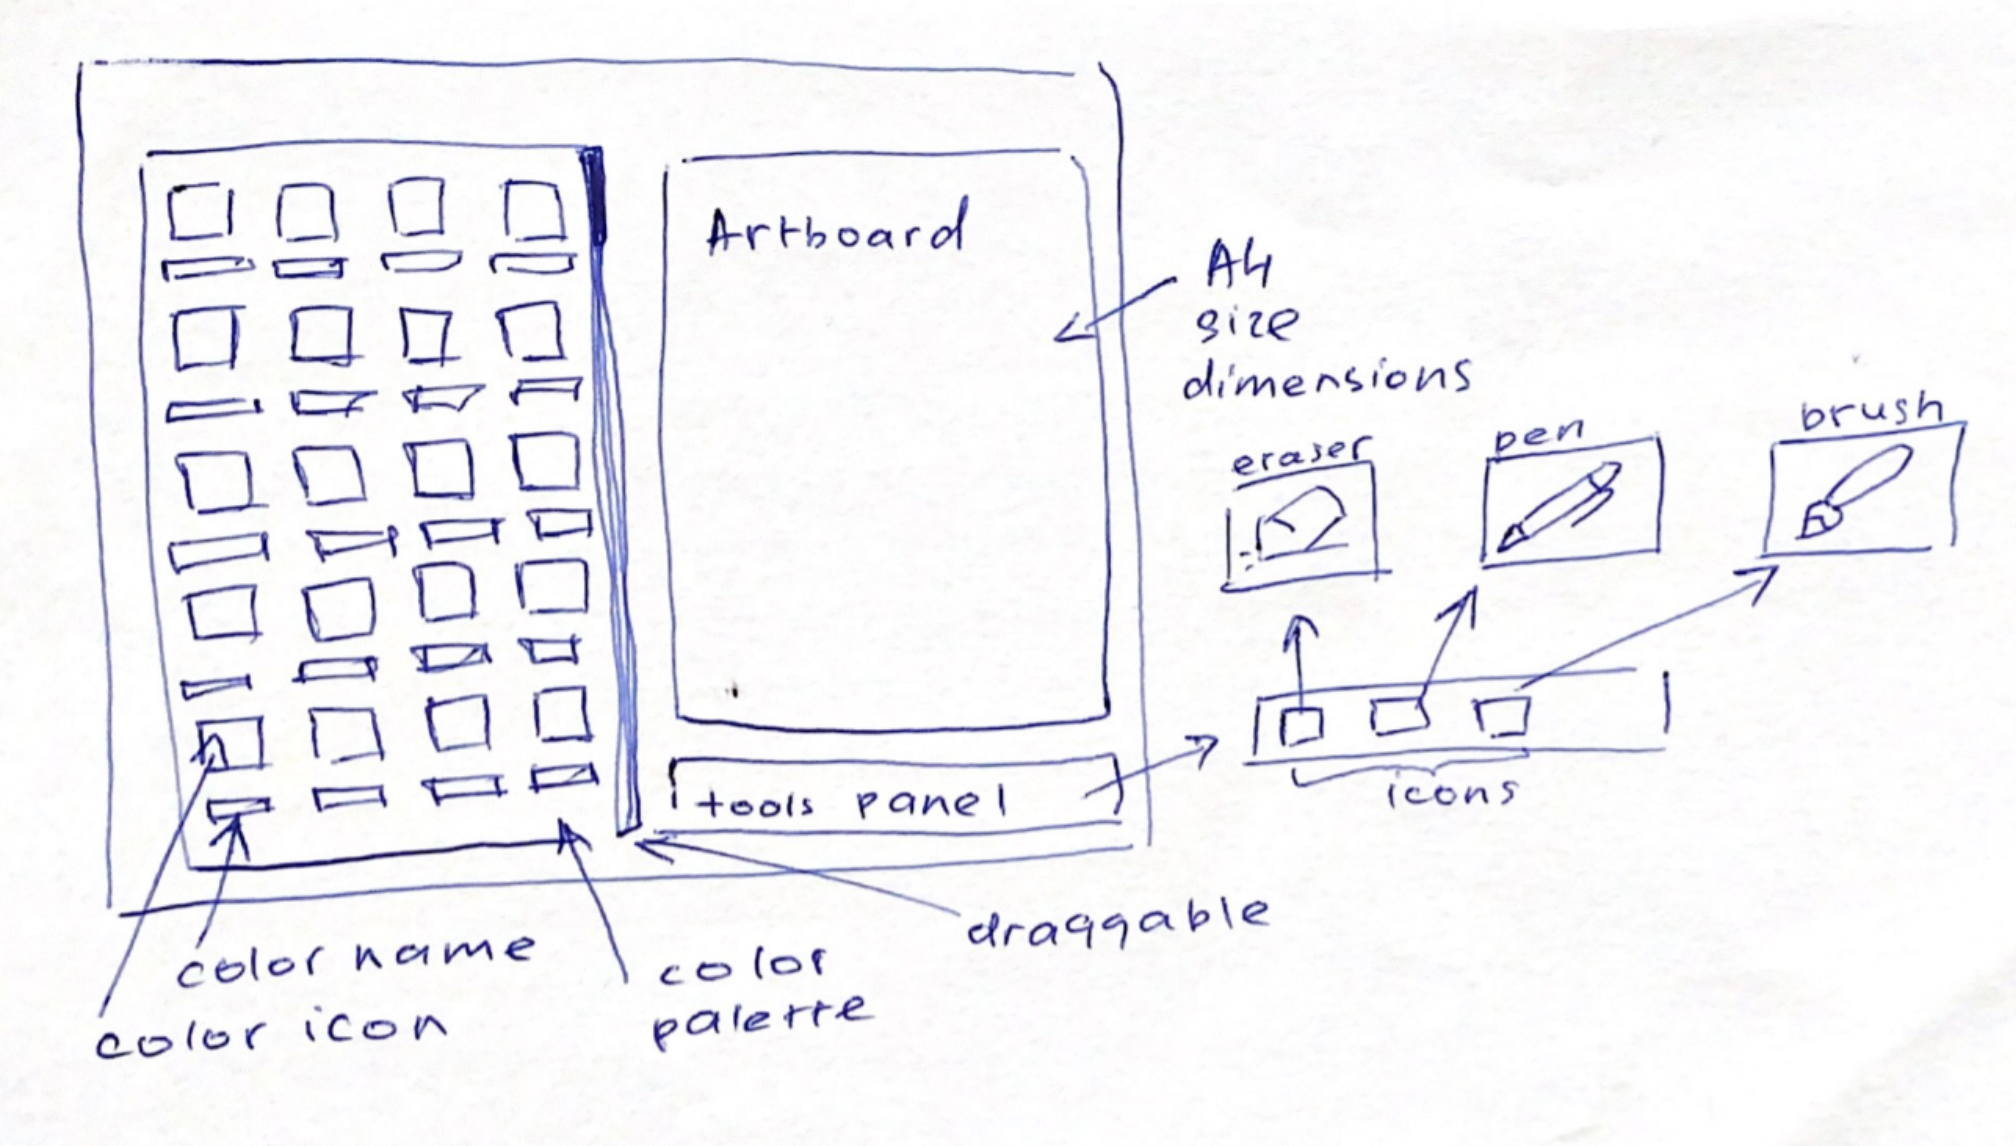 Artboard
A4
size
dimensions
eraser
pen
brush
tools panel
icons
draggable
color name
color icon
color
palette